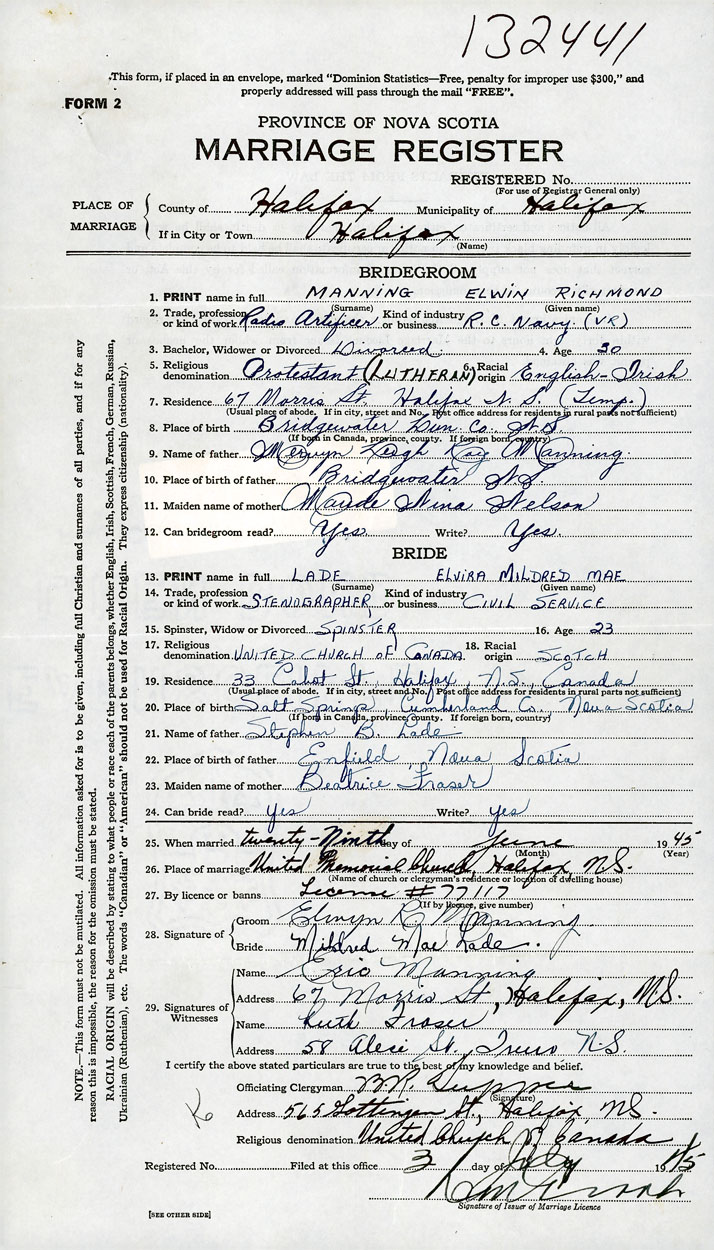 132441
This form, if placed in an envelope, marked "Dominion Statistics—Free, penalty for improper use $300," and
properly addressed will pass through the mail "FREE".
FORM 2
PROVINCE OF NOVA SCOTIA
MARRIAGE REGISTER
REGISTERED No.
(For use of Registrar General only)
PLACE OF MARRIAGE
County of Halifax Municipality of Halifax
If in City or Town Halifax
(Name)
BRIDEGROOM
1. PRINT name in full MANNING ELWIN RICHMOND
(Surname) (Given name)
2. Trade, profession or kind of work Radio Artificer Kind of industry or business R.C. Navy. (VR)
3. Bachelor, Widower or Divorced Divorced. 4. Age 30
5. Religious denomination Protestant (LUTHERAN) 6. Racial origin English-Irish
7. Residence 67 Morris St. Halifax N.S. (Temp.)
(Usual place of abode. If in city, street and No. Post office address for residents in rural parts not sufficient)
8. Place of birth Bridgewater Lun. Co. N.S.
(If born in Canada, province, county. If foreign born, country)
9. Name of father Leigh Manning.
10. Place of birth of father Bridgewater NS
11. Maiden name of mother Maude Nina Nelson
12. Can bridegroom read? Yes. Write? Yes.
BRIDE
13. PRINT name in full LADE ELVIRA MILDRED MAE
(Surname) (Given name)
14. Trade, profession or kind of work STENOGRAPHER Kind of industry or business CIVIL SERVICE
15. Spinster, Widow or Divorced SPINSTER 16. Age 23
17. Religious denomination UNITED CHURCH OF CANADA 18. Racial origin SCOTCH
19. Residence 33 Cabot St., Halifax, N.S. Canada
(Usual place of abode. If in city, street and No. Post office address for residents in rural parts not sufficient)
20. Place of birth Salt Springs, Cumberland Co. Nova Scotia
(If born in Canada, province, county. If foreign born, country)
21. Name of father Stephen B. Lade
22. Place of birth of father Enfield, Nova Scotia
23. Maiden name of mother Beatrice Fraser
24. Can bride read? yes Write? yes
25. When married twenty-Ninth day of June 1945
(Month) (Year)
26. Place of marriage United Memorial Church, Halifax, N.S.
(Name of church or clergyman's residence or location of dwelling house)
27. By licence or banns License #77117
(If by licence, give number)
28. Signature of
Groom Elwyn R Manning
Bride Mildred Mae Lade.
29. Signatures of Witnesses
Name Eric Manning
Address 67 Morris St, Halifax, N.S.
Name Ruth Fraser
Address 58 St. Truro N.S.
I certify the above stated particulars are true to the best of my knowledge and belief.
Officiating Clergyman
(Signature)
Address 565 Gottingen St., Halifax NS.
Religious denomination United Church of Canada
Registered No. Filed at this office 3 day of July 1945
Signature of Issuer of Marriage Licence
[SEE OTHER SIDE]
NOTE.—This form must not be mutilated. All information asked for is to be given, including full Christian and surnames of all parties, and if for any
reason this is impossible, the reason for the omission must be stated.
RACIAL ORIGIN will be described by stating to what people or race each of the parents belongs, whether English, Irish, Scottish, French, German, Russian,
Ukrainian (Ruthenian), etc. The words "Canadian" or "American" should not be used for Racial Origin. They express citizenship (nationality).